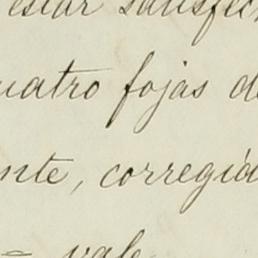 estar satisfec
uatro fojas d
nte, corregid
= vale